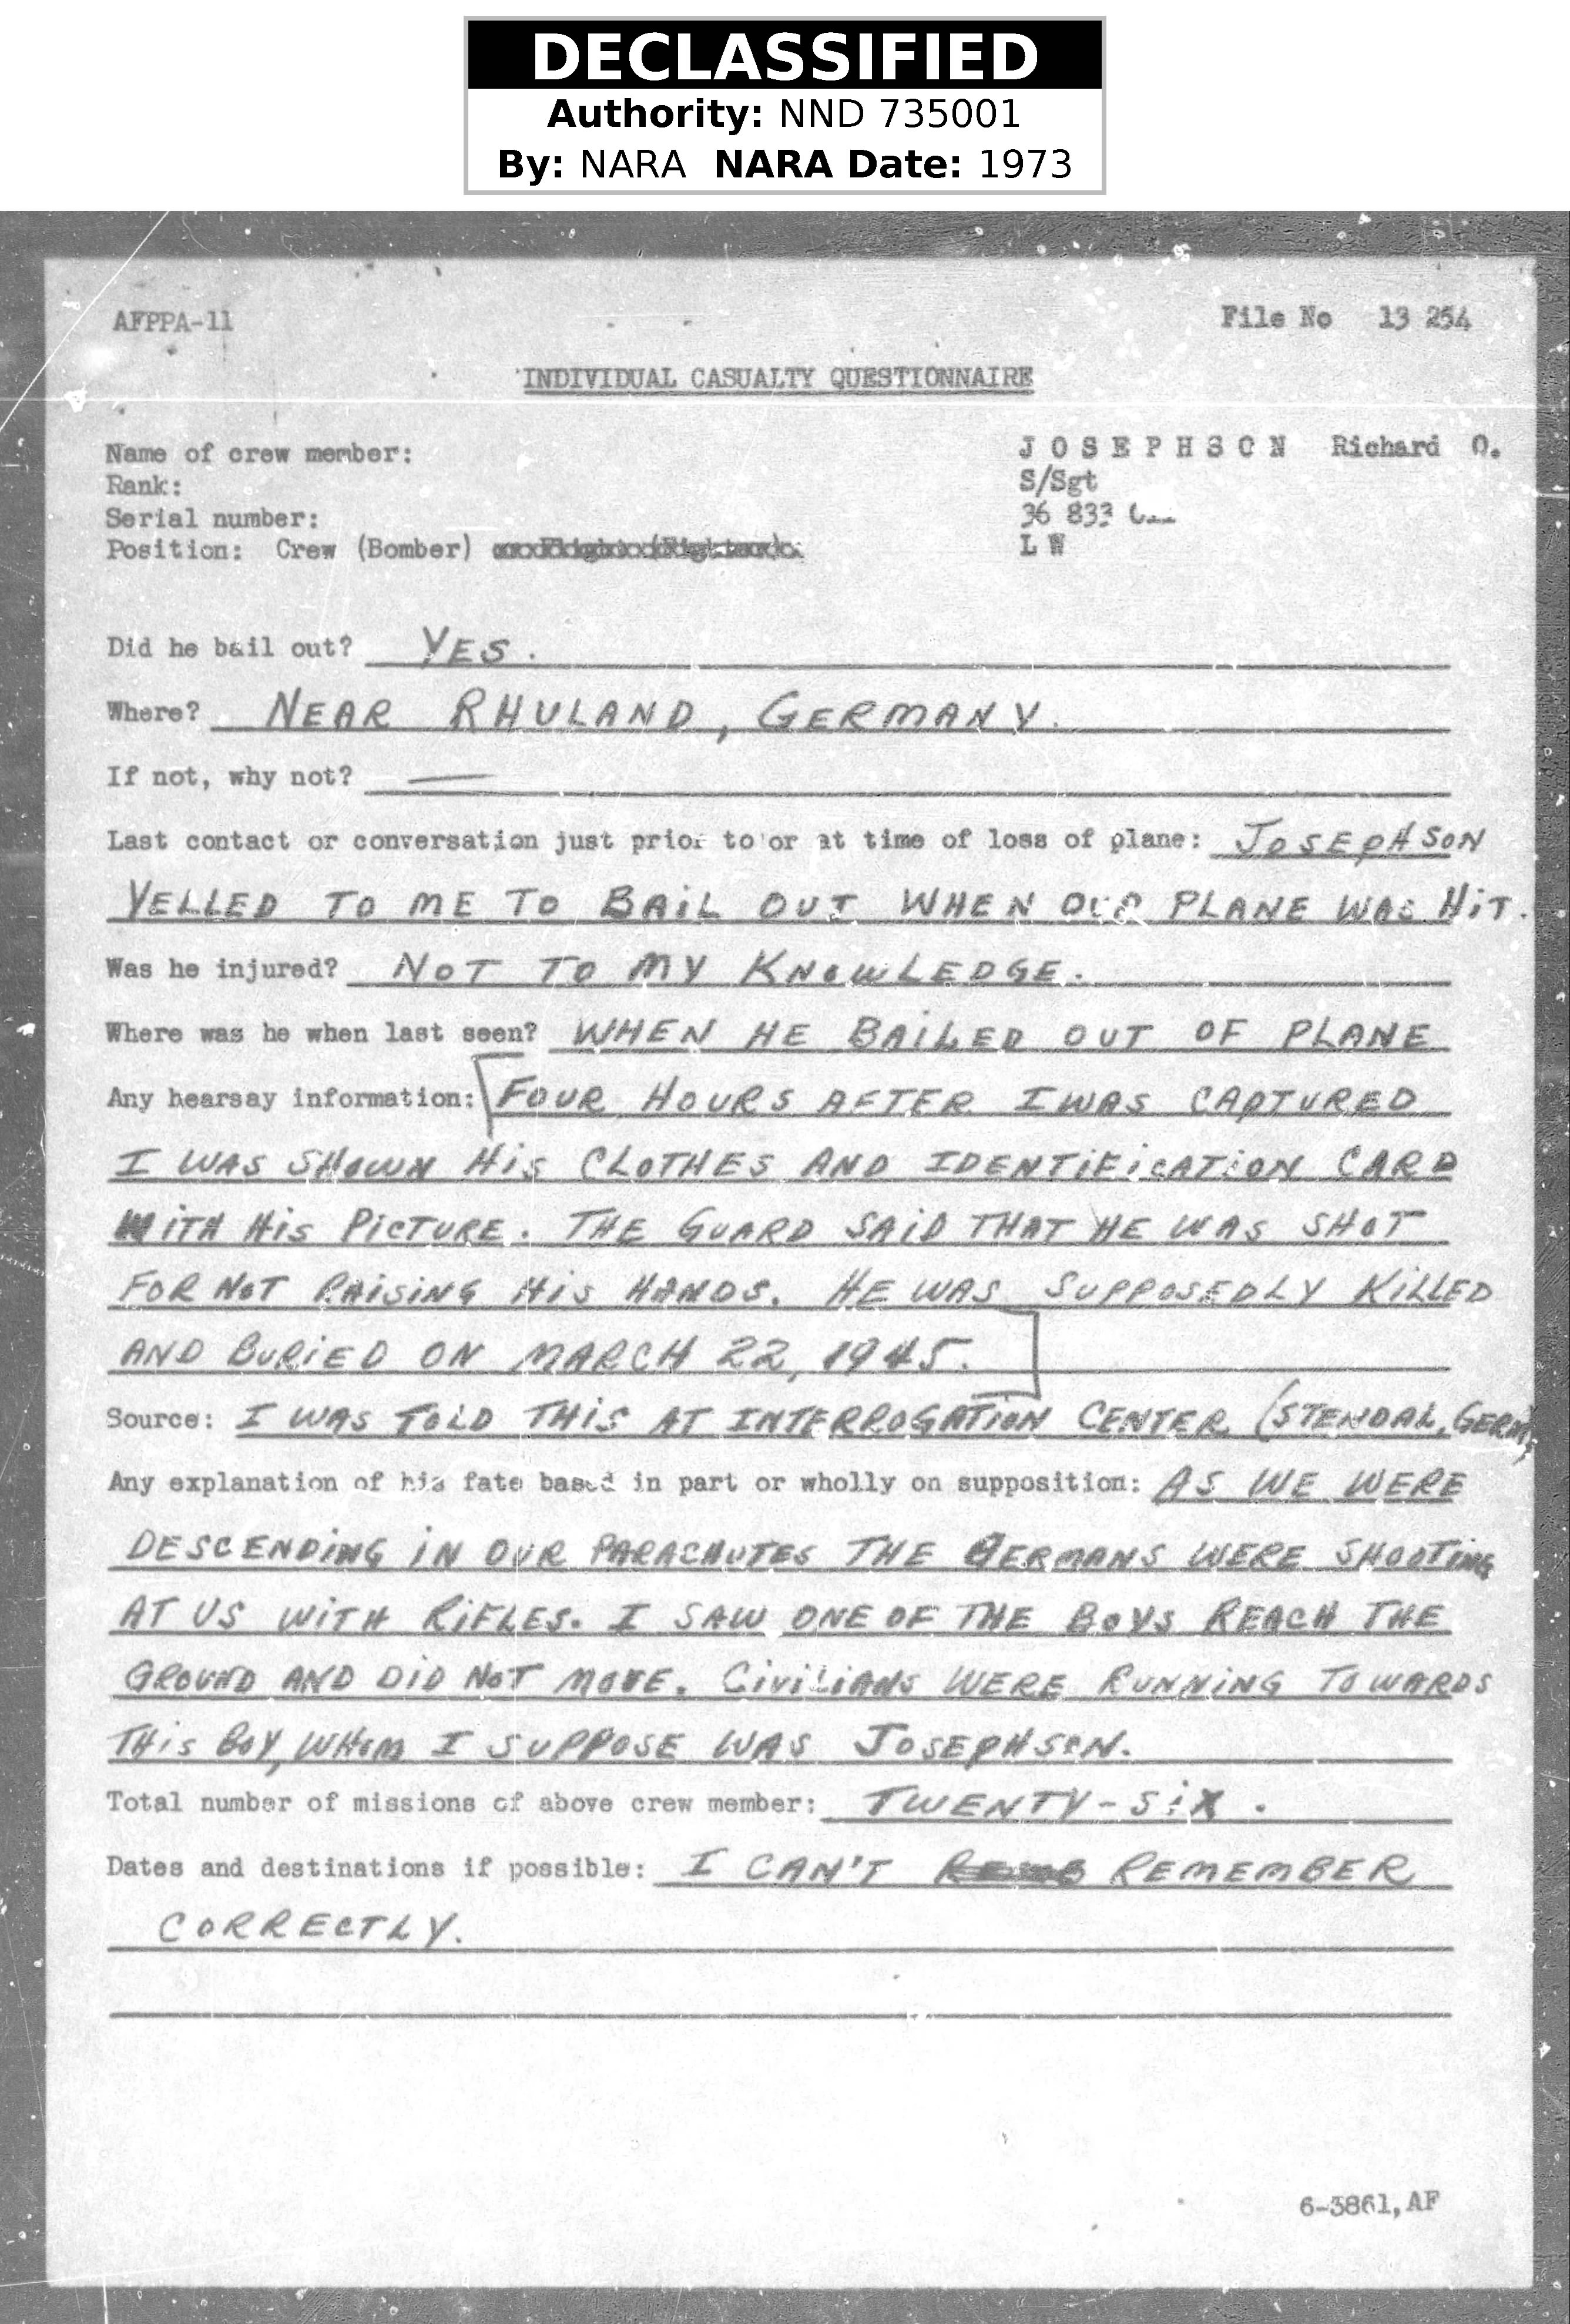 DECLASSIFIED
Authority: NND 735001
By: NARA NARA Date: 1973
AFPPA-11
File No 13 254
INDIVIDUAL CASUALTY QUESTIONNAIRE
Name of crew member: JOSEPHSON Richard O.
Rank: S/Sgt
Serial number: 36 833
Position: Crew (Bomber) L W
Did he bail out? YES.
Where? NEAR RHULAND, GERMANY.
If not, why not? —
Last contact or conversation just prior to or at time of loss of plane: JOSEPHSON
YELLED TO ME TO BAIL OUT WHEN OUR PLANE WAS HIT.
Was he injured? NOT TO MY KNOWLEDGE.
Where was he when last seen? WHEN HE BAILED OUT OF PLANE
Any hearsay information: [FOUR HOURS AFTER I WAS CAPTURED
I WAS SHOWN HIS CLOTHES AND IDENTIFICATION CARD
WITH HIS PICTURE. THE GUARD SAID THAT HE WAS SHOT
FOR NOT RAISING HIS HANDS. HE WAS SUPPOSEDLY KILLED
AND BURIED ON MARCH 22, 1945.]
Source: I WAS TOLD THIS AT INTERROGATION CENTER (STENDAL, GERM.
Any explanation of his fate based in part or wholly on supposition: AS WE WERE
DESCENDING IN OUR PARACHUTES THE GERMANS WERE SHOOTING
AT US WITH RIFLES. I SAW ONE OF THE BOYS REACH THE
GROUND AND DID NOT MOVE. CIVILIANS WERE RUNNING TOWARDS
THIS BOY, WHOM I SUPPOSE WAS JOSEPHSON.
Total number of missions of above crew member: TWENTY-SIX.
Dates and destinations if possible: I CAN'T REMEMBER
CORRECTLY.
6-3861, AF